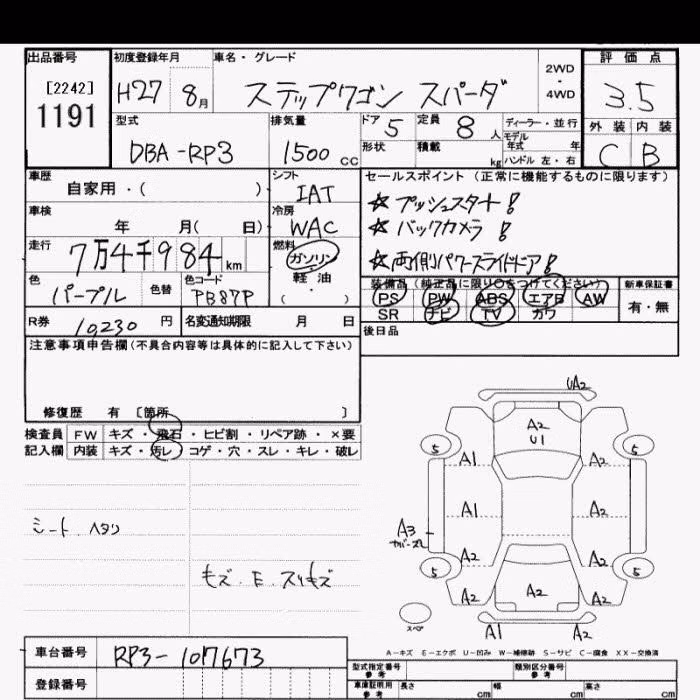 出品番号 初度登録年月 車名・グレード 2WD・4WD 評価点
[2242]
1191
H27 8月 ステップワゴン スパーダ 3.5
型式 排気量 ドア 定員 ディーラー・並行 外装 内装
DBA-RP3 1500 CC 5 8人 モデル年式 年 C B
形状 積載 kg ハンドル 左・右
車歴 シフト セールスポイント (正常に機能するものに限ります)
自家用・( ) IAT ☆プッシュスタート!
車検 冷房 ☆バックカメラ!
年 月( 日) WAC
走行 燃料 ☆両側パワースライドドア!
7万4千984 km ガソリン
軽油
( ・ )
色 色替 色コード 装備品 (純正品に限り○をつけてください) 新車保証書
パープル PB87P PS PW ABS エアB AW 有・無
SR ナビ TV カワ
R券 10,230 円 名変通知期限 月 日 後日品
注意事項申告欄(不具合内容等は具体的に記入して下さい)
修復歴 有 [箇所 ]
検査員 FW キズ・飛石・ヒビ割・リペア跡・×要
記入欄 内装 キズ・汚レ・コゲ・穴・スレ・キレ・破レ
シート ヘタリ
キズ・E・スリキズ
UA2
A2
U1
5 5
A1 A2
A1 A2
A3
A2 A2
5 5
A2 A2 A2
スペア
A1 A2
A-キズ E-エクボ U-凹み W-補修跡 S-サビ C-腐食 XX-交換済
車台番号 RP3-1017673
登録番号
型式指定番号 参考 類別区分番号 参考
車庫証明用 参考 長さ cm 幅 cm 高さ cm